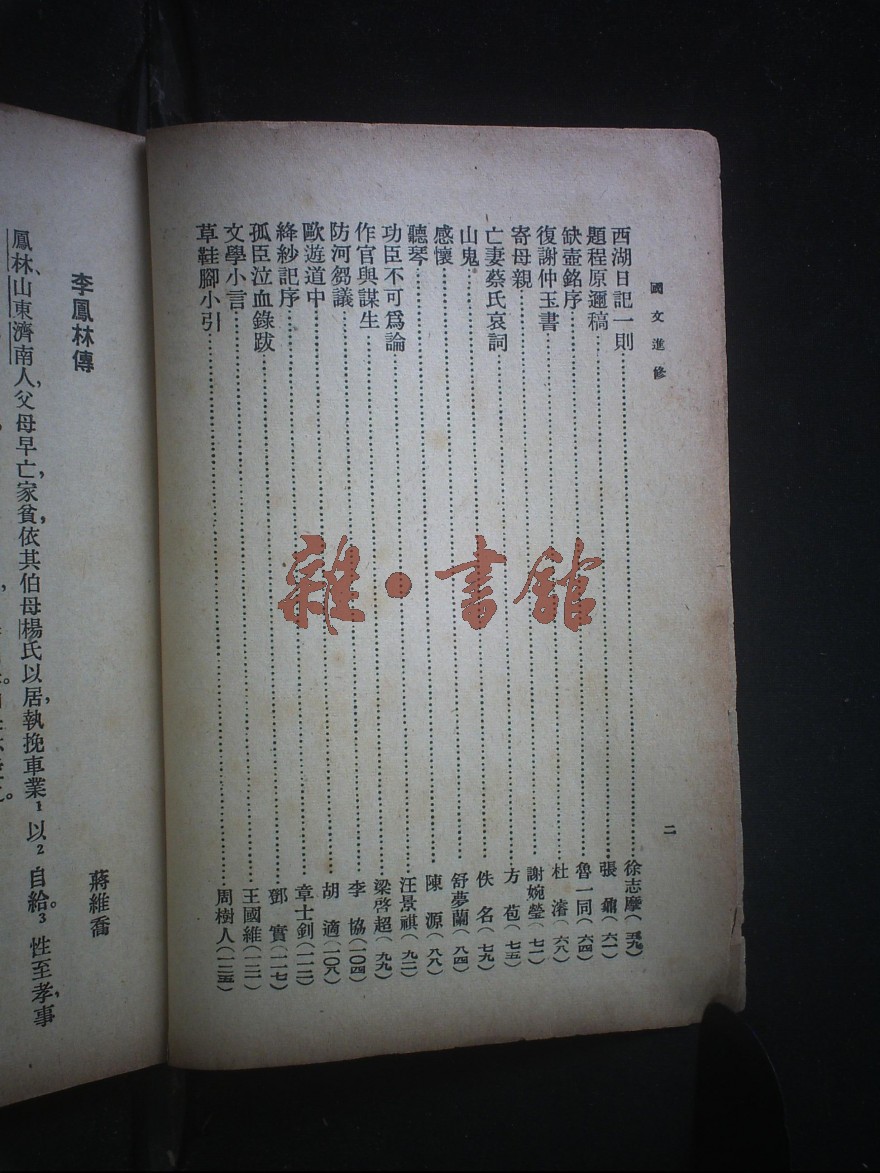 國文進修 二
西湖日記一則……徐志摩（五九）
題程原邇稿……張鼐（六一）
缺壺銘序……魯一同（六四）
復謝仲玉書……杜濬（六八）
寄母親……謝婉瑩（七一）
亡妻蔡氏哀詞……方苞（七五）
山鬼……佚名（七九）
感懷……舒夢蘭（八四）
聽琴……陳源（八八）
功臣不可爲論……汪景祺（九二）
作官與謀生……梁啓超（九九）
防河芻議……李協（一〇四）
歐遊道中……胡適（一〇八）
絳紗記序……章士釗（一一二）
孤臣泣血錄跋……鄧實（一一七）
文學小言……王國維（一二一）
草鞋腳小引……周樹人（一二五）
雜·書館
李鳳林傳 蔣維喬
鳳林、山東濟南人，父母早亡，家貧，依其伯母楊氏以居，執挽車業1以2自給3。性至孝，事